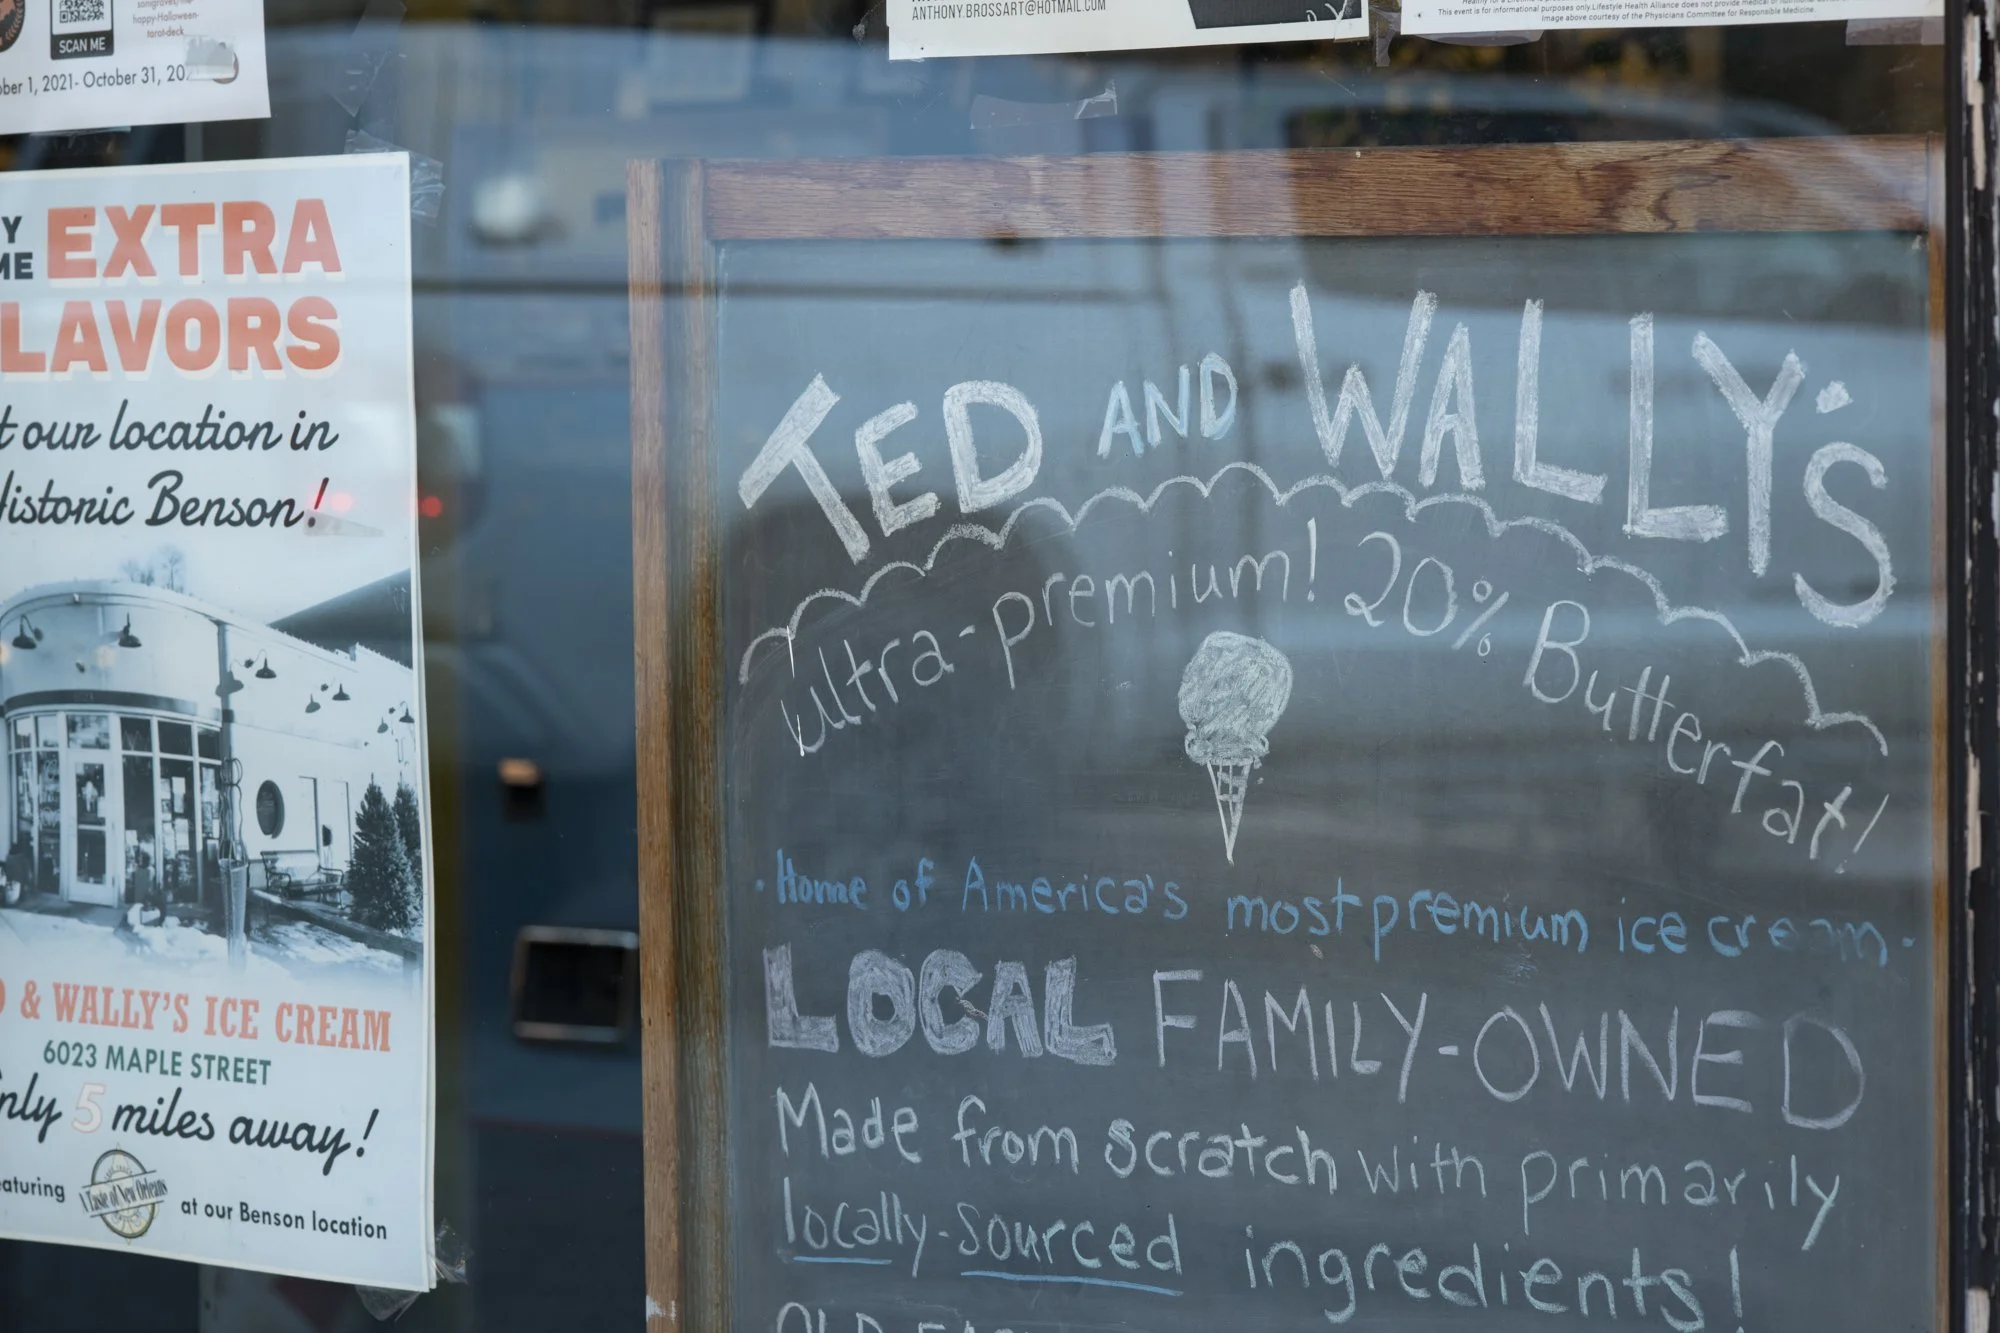 happy-Halloween-
tarot-deck
SCAN ME
ber 1, 2021- October 31, 20
ANTHONY.BROSSART@HOTMAIL.COM
This event is for informational purposes only. Lifestyle Health Alliance does not provide medical
Image above courtesy of the Physicians Committee for Responsible Medicine.
Y
ME
EXTRA
LAVORS
t our location in
istoric Benson!
D & WALLY'S ICE CREAM
6023 MAPLE STREET
nly 5 miles away!
eaturing
A Taste of New Orleans
at our Benson location
TED AND WALLY'S
ultra-premium! 20% Butterfat!
· Home of America's most premium ice cream ·
LOCAL FAMILY-OWNED
Made from scratch with primarily
locally-sourced ingredients!